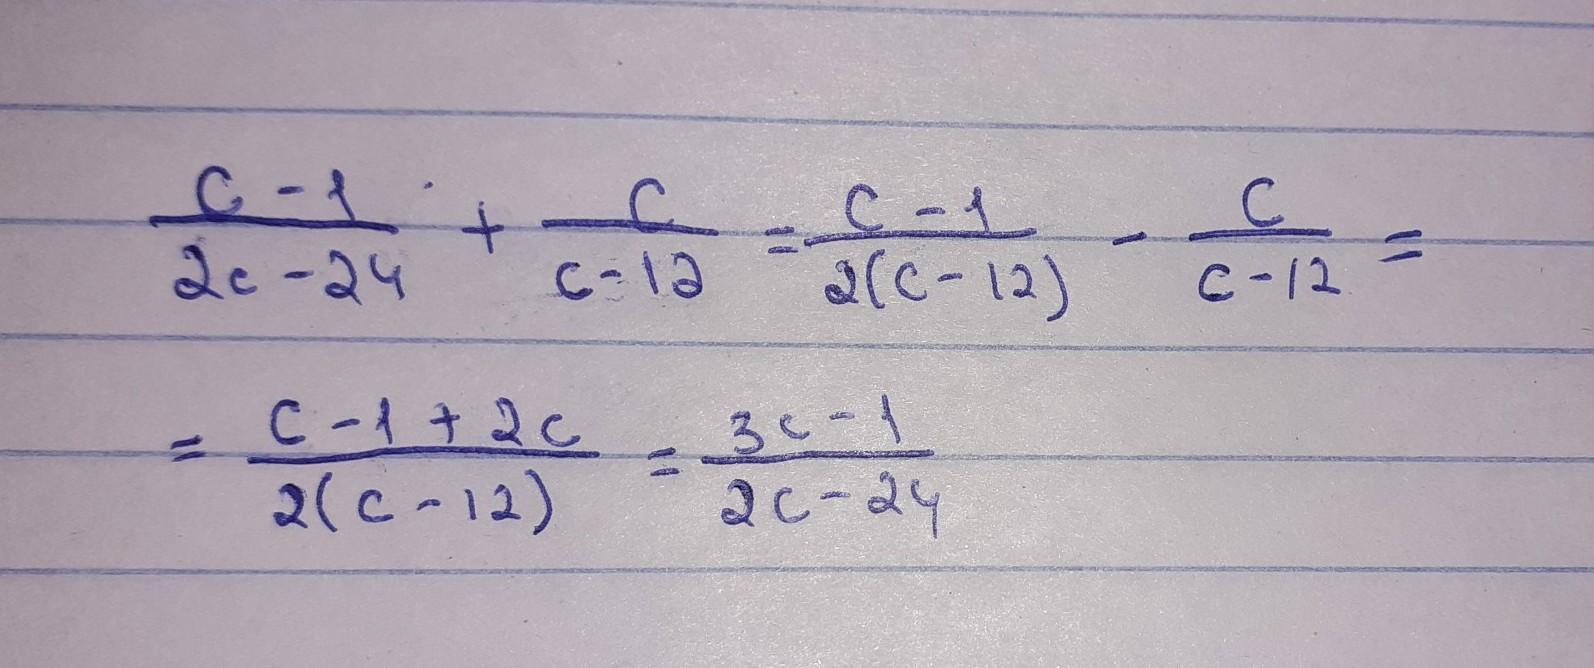 (c-1)/(2c-24) + c/(c-12) = (c-1)/(2(c-12)) - c/(c-12) =
= (c-1+2c)/(2(c-12)) = (3c-1)/(2c-24)